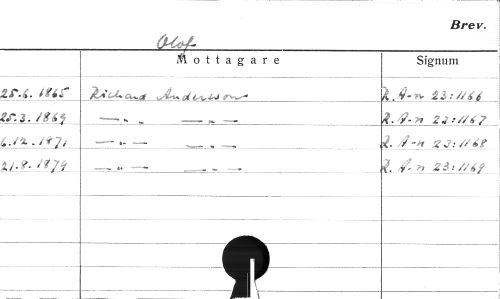 Brev.
Olof
Mottagare Signum
25.6.1865 Richard Andersson R.A-n 23:1166
25.3.1869 —"— —"— R.A-n 23:1167
6.12.1871 —"— —"— R.A-n 23:1168
21.8.1879 —"— —"— R.A-n 23:1169